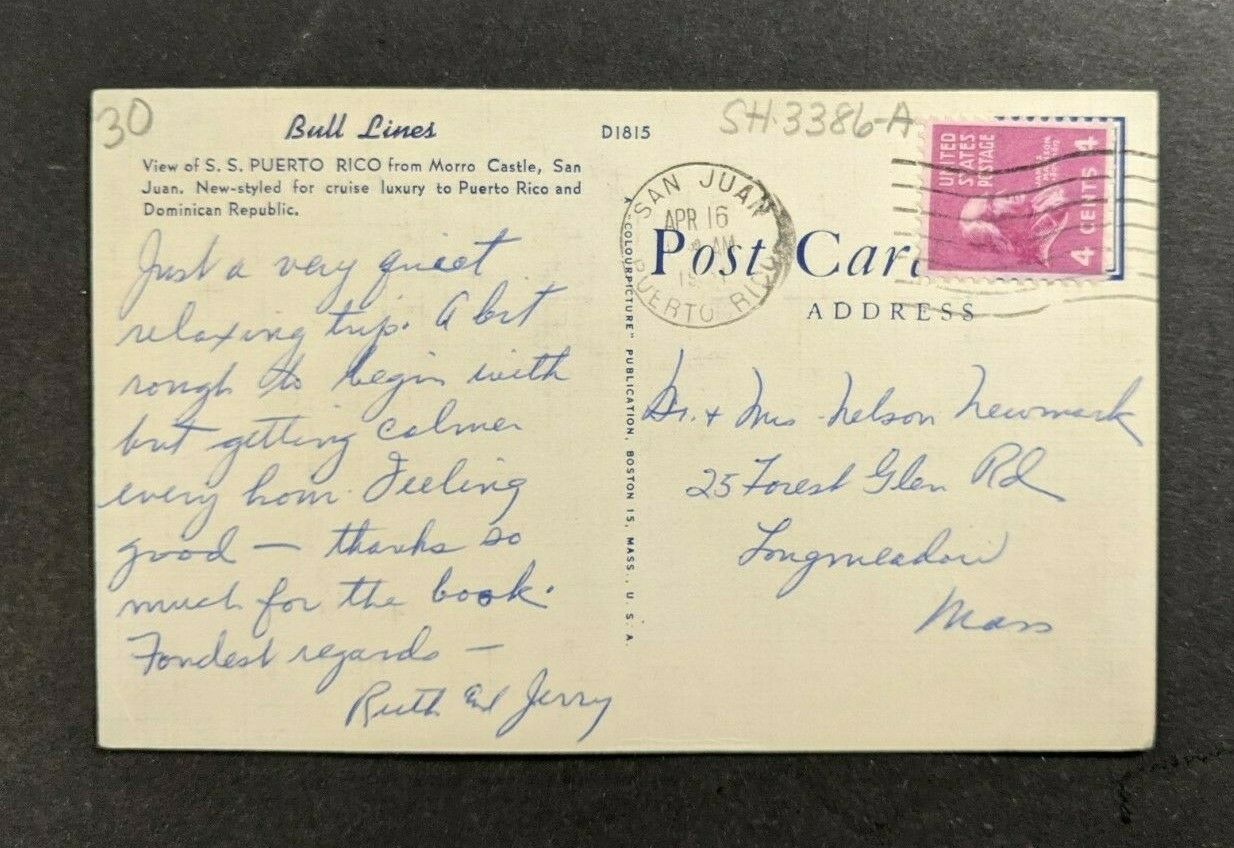 30
Bull Lines
View of S. S. PUERTO RICO from Morro Castle, San
Juan. New-styled for cruise luxury to Puerto Rico and
Dominican Republic.
Just a very quiet
relaxing trip. A bit
rough to begin with
but getting calmer
every hour. Feeling
good — thanks so
much for the book.
Fondest regards —
Ruth and Jerry
D1815
A "COLOURPICTURE" PUBLICATION, BOSTON 15, MASS. U. S. A.
SH-3386-A
SAN JUAN
APR 16
AM
PUERTO RICO
UNITED
STATES
POSTAGE
4 CENTS 4
Post Card
ADDRESS
Dr. + Mrs Nelson Newmark
25 Forest Glen Rd
Longmeadow
Mass